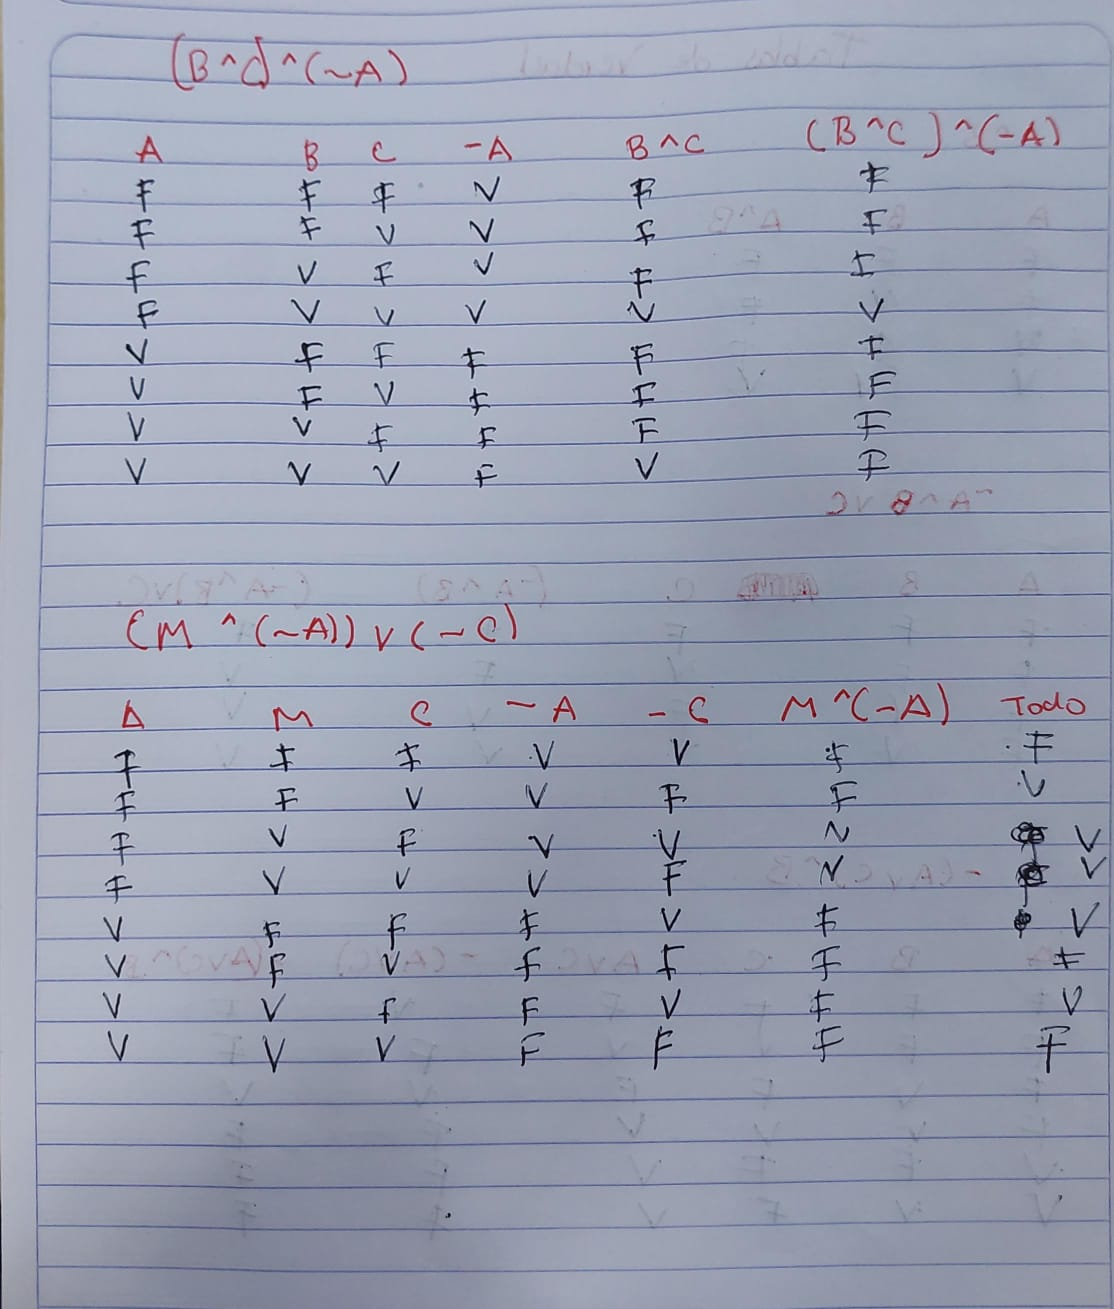 (B^C)^(~A)
A B C -A B^C (B^C)^(-A)
F F F V F F
F F V V F F
F V F V F F
F V V V V V
V F F F F F
V F V F F F
V V F F F F
V V V F V F
(M ^ (~A)) v (~C)
A M C ~A -C M^(-A) Todo
F F F V V F F
F F V V F F V
F V F V V V V
F V V V F V V
V F F F V F V
V F V F F F F
V V F F V F V
V V V F F F F